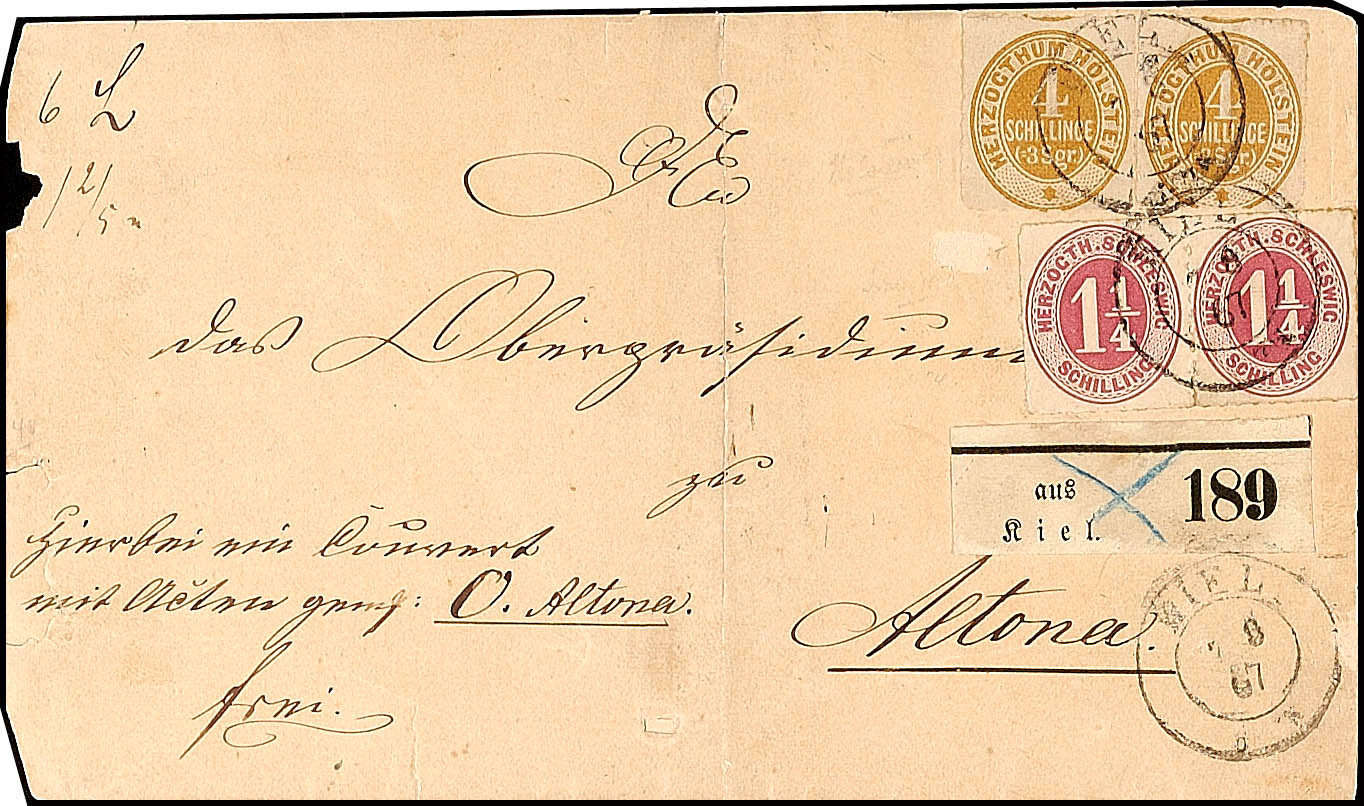 HERZOGTHUM HOLSTEIN 4 SCHILLINGE (=3Sgr.)
HERZOGTHUM HOLSTEIN 4 SCHILLINGE (=3Sgr.)
6 L
12/5
An
HERZOGTH. SCHLESWIG 1 1/4 SCHILLING
HERZOGTH. SCHLESWIG 1 1/4 SCHILLING
das Oberpräsidium
zu
aus
Kiel.
189
Hierbei ein Couvert
mit Acten gez: O. Altona.
Altona.
frei.
KIEL
8
67